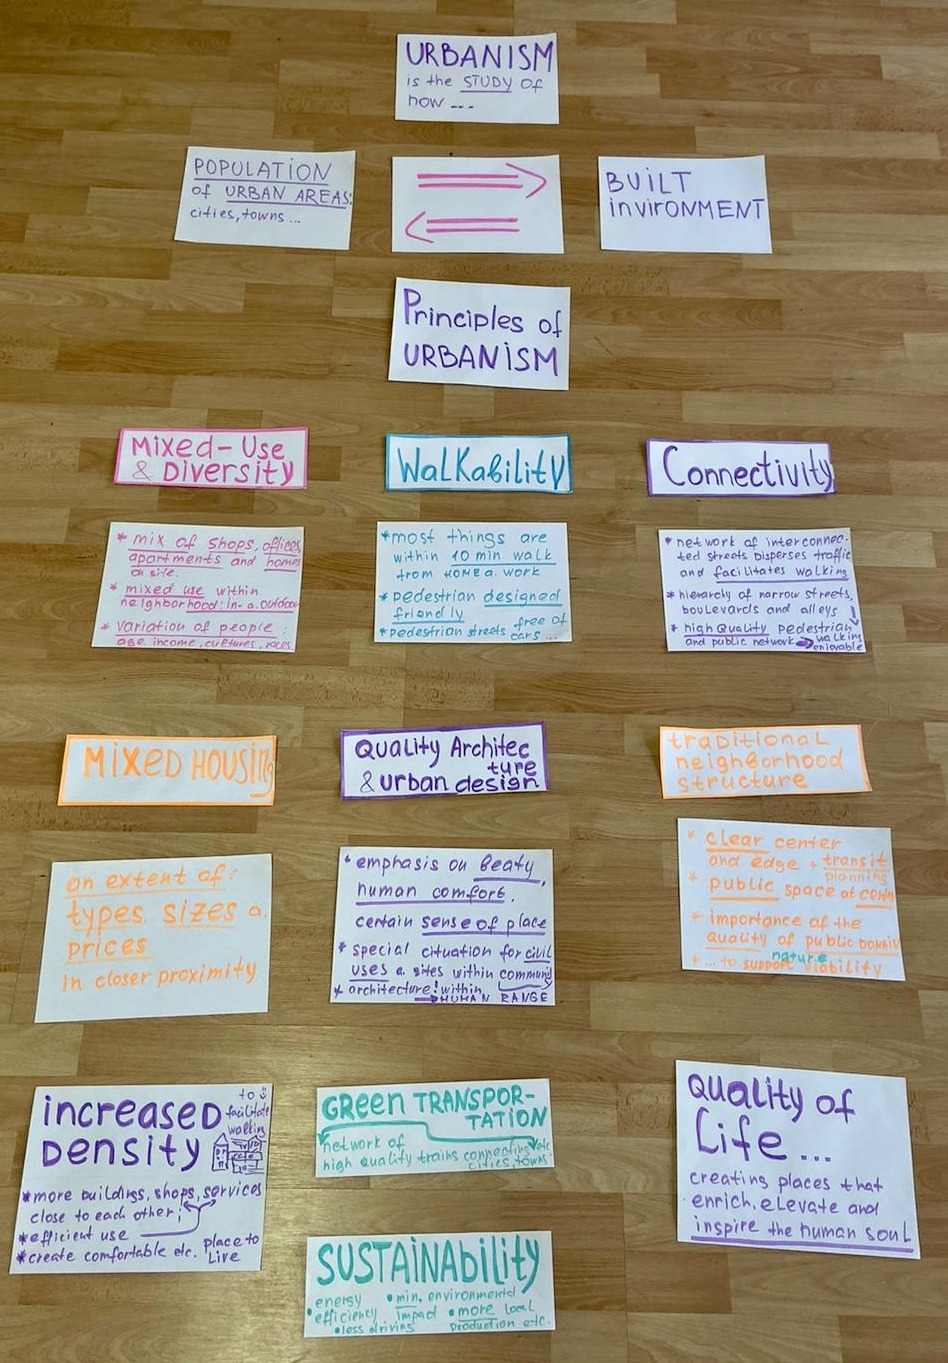 URBANISM
is the STUDY of
how ---
POPULATION
of URBAN AREAS:
cities, towns ...
BUILT
inVIRONMENT
Principles of
URBANISM
Mixed-Use
& Diversity
* mix of shops, offices
apartments and homes
on site.
* mixed use within
neighborhood: in- a. outdoor
* variation of people:
age, income, cultures, races.
Walkability
* most things are
within 10 min walk
from HOME a. work
* pedestrian designed
friendly
* pedestrian streets free of
cars ...
Connectivity
* network of interconnec-
ted streets disperses traffic
and facilitates walking
* hierarchy of narrow streets,
boulevards and alleys
* high Quality pedestrian
and public network walking
enjoyable
MIXED HOUSING
an extent of:
types, sizes a.
prices
in closer proximity
Quality Architec
ture
& urban design
* emphasis on beaty,
human comfort,
certain sense of place
* special cituation for civil
uses a. sites within community
* architecture! within
HUMAN RANGE
traditional
neighborhood
structure
* clear center
and edge + transit
planning
* public space at center
* importance of the
quality of public DOMAIN
nature
* ... to support viability
increased
DENSITY
to
facilitate
walking
* more buildings, shops, services
close to each other;
* efficient use
* create comfortable etc. place to
Live
GReen TRANSPOR-
TATION
network of
high quality trains connecting
cities, towns
etc
Quality of
Life...
creating places that
enrich, elevate and
inspire the human soul
SUSTAINAbility
• energy
efficiency
• min. environmental
impact
• less driving
• more local
production etc.